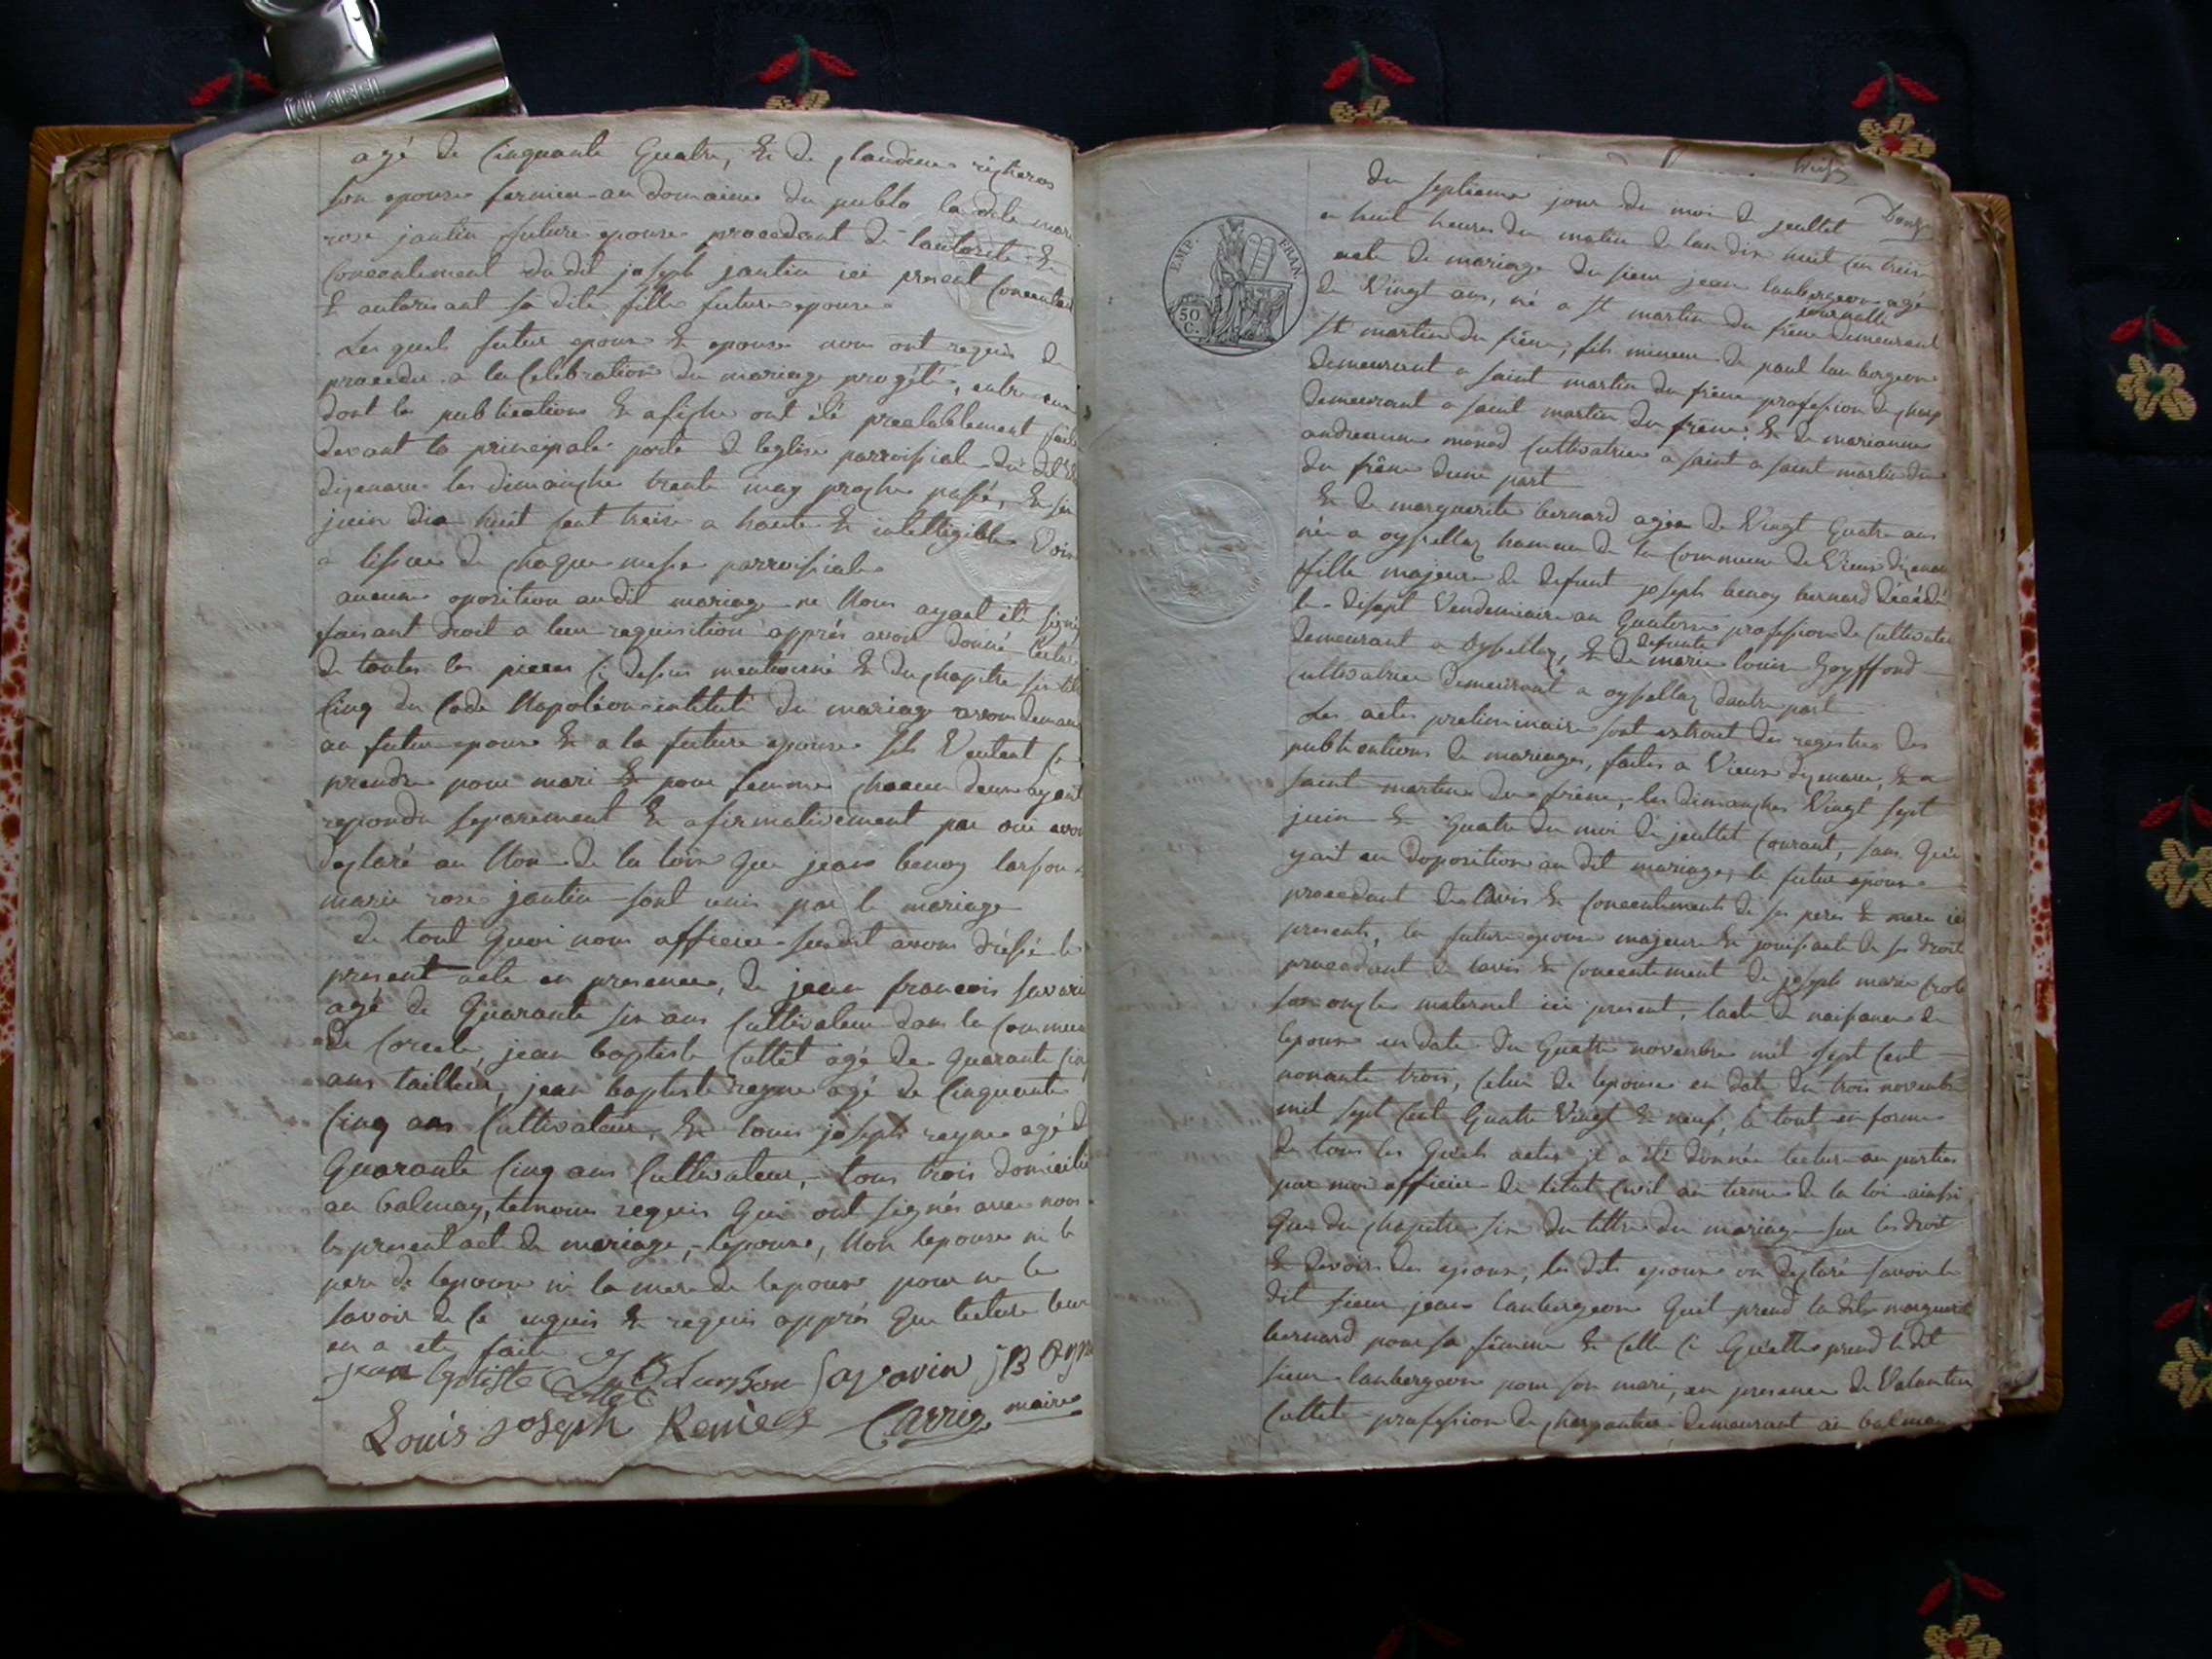 agé de Cinquante Quatre, & de
son epouse fermier au domaine du la dite marie
rose jantin future epouse procedant de lautorité &
Concentement du dit joseph jantin ici present Concentant
& autorisant sa dite fille future epouse
Les quels futur epoux & epouse nous ont requis de
proceder a la Celebration du mariage progété, entre eux
dont les publications & afiche ont été prealablement faite
devant la principale porte de leglise parroissial du dit
dizenave les dimanche trente may proche passé, & six
juin dix huit cent treize a haute & intelligible Voix
a lissue de chaque messe parroissiale
aucune oposition audit mariage ne Nous ayant été signifié
faisant droit a leur requisition apprès avoir donné lecture
de toutes les pieces Ci dessus mentionné & du chapitre six titre
Cinq du Code Napoléon intitulé du mariage avons demandé
au futur epoux & a la future epouse sils Veulent se
prendre pour mari & pour femme chacun deux ayant
repondu separement & afirmativement par oui avons
declaré au Nom de la loix que jean benoy
marie rose jantin sont unis par le mariage
de tout Quoi nous officier susdit avons dréssé le
present acte en presence, de jean francois savarin
agé de Quarante six ans Cultivateur dans la Commune
de Corcelle, jean baptiste Cottet agé de Quarante Cinq
ans tailleur, jean baptiste reyne agé de Cinquante
Cinq ans Cultivateur, & louis joseph reyne agé de
Quarante Cinq ans Cultivateur, tous trois domicilié
au balmay, temoins requis Qui ont signés avec nous
le present acte de mariage, lepoux, Non lepouse ni le
pere de lepouse ni la mere de lepoux pour ne le
savoir de ce enquis & requis apprés Que lecture leur
en a eté faite
jean baptiste Cottet Savarin JB
Louis joseph Carrier maire
du septieme jour du moi de jeullet
a huit heures du matin de lan dix huit cen treize
acte de mariage du sieur jean laubergeon agé
de Vingt ans, né a St martin du frêne demeurant
St martin du frêne, fils mineur de paul laubergeon
demeurant a saint martin du frêne profession de
demeurant a saint martin du frêne, & de marianne
monod Cultivatrice a saint a saint martin du
du frêne dune part
& de marguerite bernard agée de Vingt Quatre ans
née a oyssellaz hameau de la Commune de Vieux dizenave
fille majeure de defunt joseph benoy bernard décédé
le disept Vendemiaire an Quatorze profession de Cultivateur
demeurant a Oyssellaz, & de defunte marie louise Goyffond
Cultivatrice demeurant a oyssellaz dautre part
Les actes preliminaire sont extrait des registres des
publications de mariages, faites a Vieux dizenave, & a
saint martin du frêne, les dimanches Vingt sept
juin & Quatre du moi de jeullet Courant, sans Qu'il
yait eu doposition au dit mariage, le futur epoux
procedant de lavis & Concentements de ses pere & mere ici
presents, la future epouse majeure & jouissante de ses droit
procedant de lavis & Concentement de joseph marie
son oncle maternel ici present, lacte de naissance de
lepoux en date du Quatre novembre mil sept Cent
nonante trois, Celui de lepouse en date du trois novembre
mil sept Cent Quatre Vingt & neuf, le tout en forme
de tous les Quels actes il a été donnée lecture au parties
par moi officier de létat Civil au terme de la loi ainsi
Que du chapitre six du tittre du mariage sur les droit
& devoirs des epoux, les dits epoux on declaré savoir le
dit sieur jean laubergeon Quil prend la dite marguerite
bernard pour sa femme & Celle Ci Quelle prend le dit
sieur laubergeon pour son mari, en presence de Valentin
Cottet profession de charpantier demeurant au balmay
EMP. FRAN.
50 C.